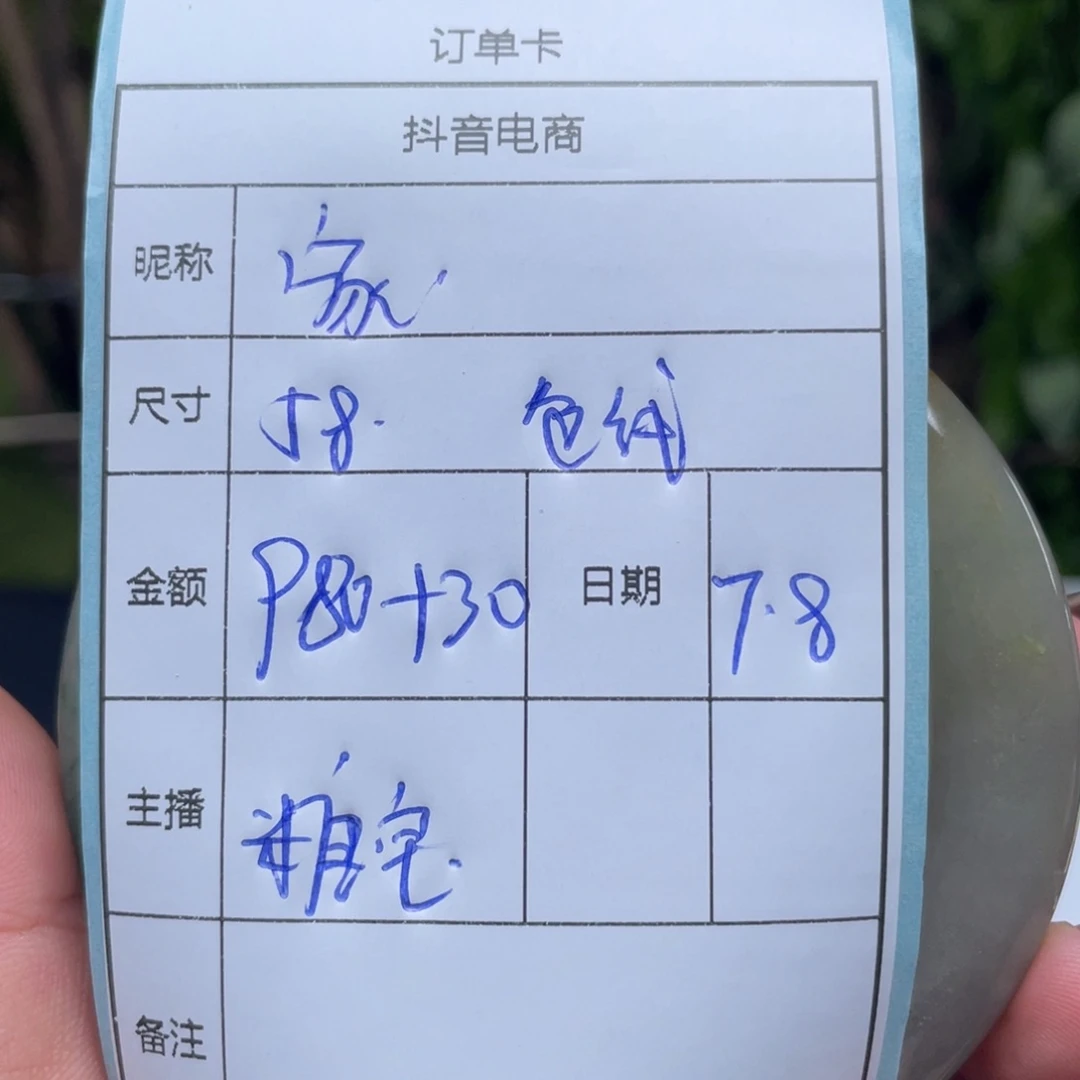 订单卡
抖音电商
昵称 家
尺寸 58. 包绒
金额 P80+30 日期 7.8
主播 糖宝
备注